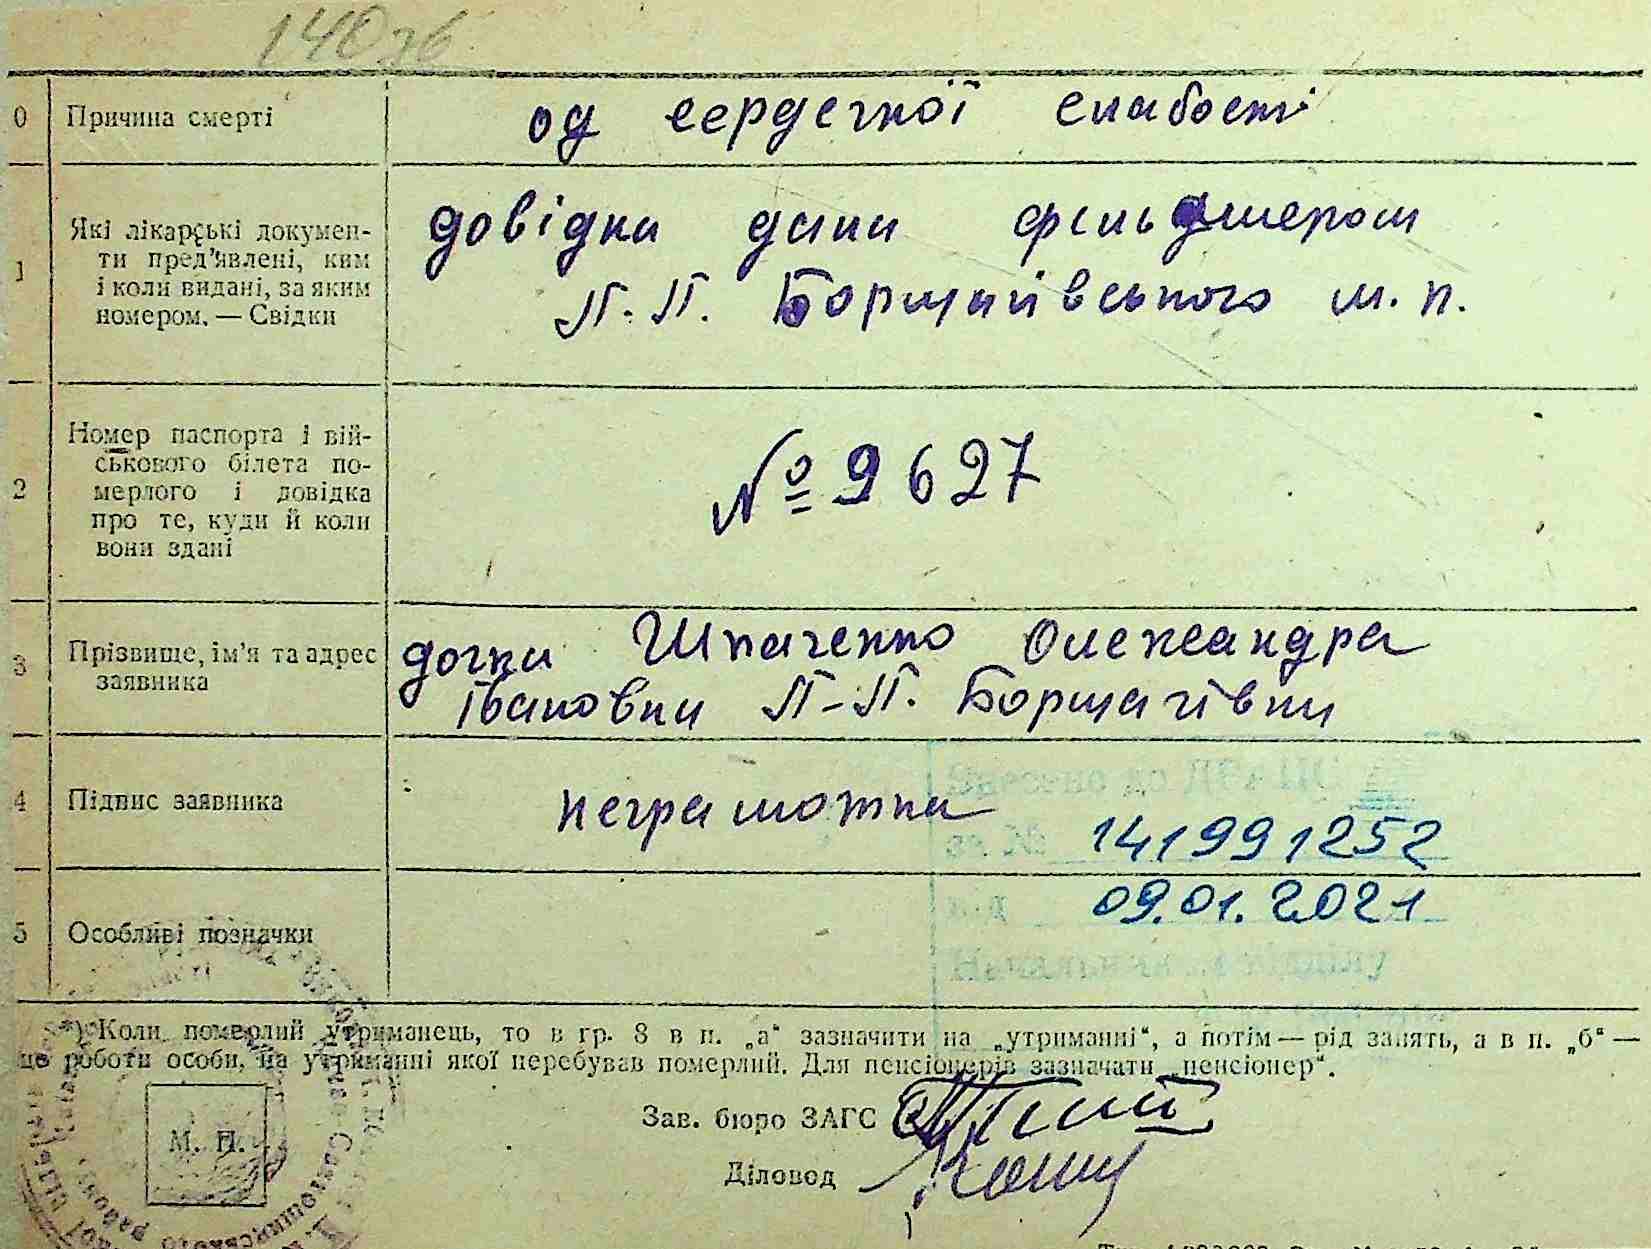 140
0 Причина смерті од сердечної слабості
1 Які лікарські докумен-
ти пред'явлені, ким
і коли видані, за яким
номером. — Свідки
довідки дани фельдшером
П-П. Борщагівського м. п.
2 Номер паспорта і вій-
ськового білета по-
мерлого і довідка
про те, куди й коли
вони здані
№ 9627
3 Прізвище, ім'я та адрес
заявника
дочки Шпаченко Олександра
Івановни П-П. Борщагівки
4 Підпис заявника неграмотна
Внесено до
за № 141991252
від 09.01.2021
5 Особливі позначки
*) Коли померлий утриманець, то в гр. 8 в п. „а“ зазначити на „утриманні“, а потім — рід занять, а в п. „б“ —
це роботи особи, на утриманні якої перебував померлий. Для пенсіонерів зазначати „пенсіонер“.
Зав. бюро ЗАГС
Діловод
М. П.